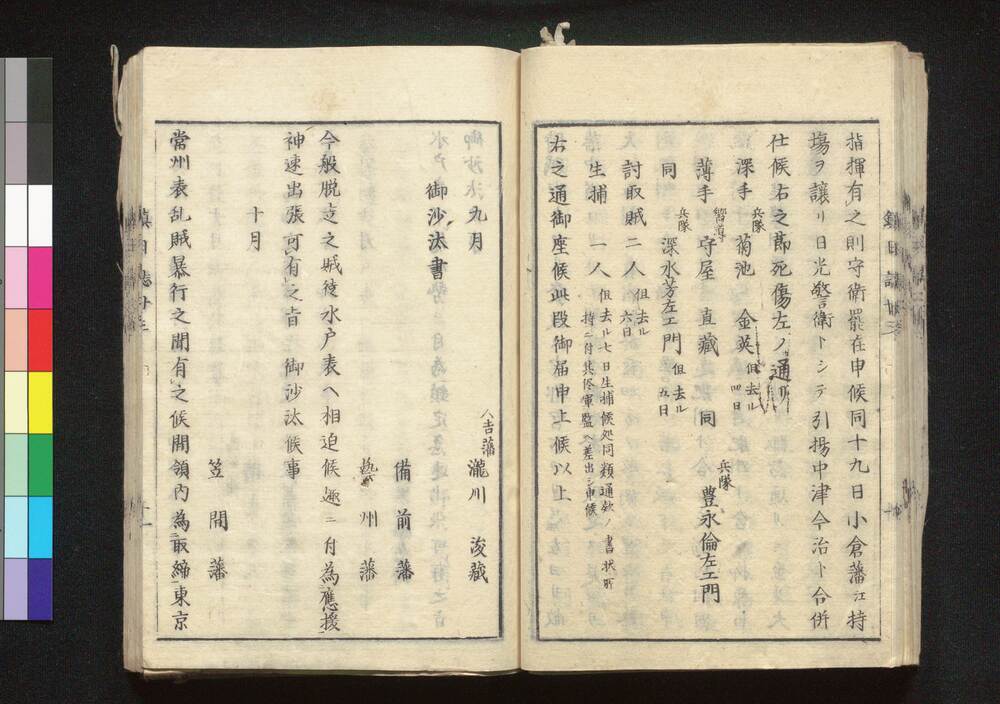 指揮有之則守衛罷在申候同十九日小倉藩江持
塲ヲ讓リ日光警衛トシテ引揚中津今治ト合併
仕候右之節死傷左ノ通リ
深手 兵隊 菊池 金英 但去ル四日
薄手 嚮導 守屋 直藏 同 兵隊 豊永倫左エ門
同 兵隊 深水芳左エ門 但去ル五日
討取賊二人 但去ル六日
生捕 一人 但去ル七日生捕候処同類通欤ノ書状所
持ニ付其侭軍監ヘ差出シ申候
右之通御座候此段御届申上候以上
九月 人吉藩 瀧川 浚藏
御沙汰書
備前藩
藝州藩
今般脱走之賊徒水戸表ヘ相迫候趣ニ付為應援
神速出張可有之旨 御沙汰候事
十月
笠間藩
常州表乱賊暴行之聞有之候間領内為取締東京